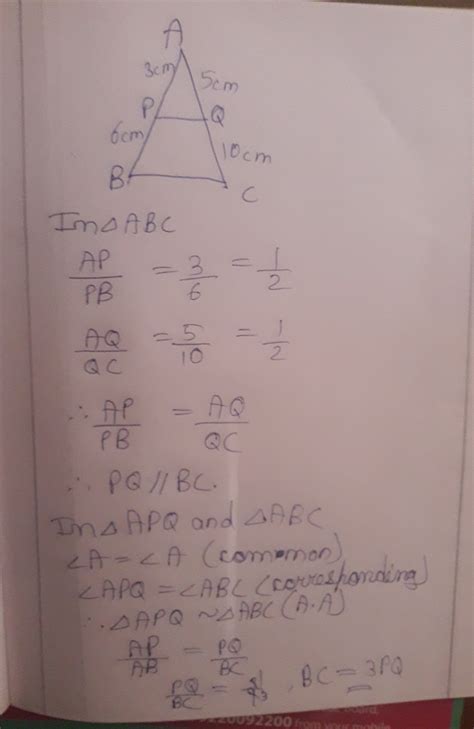 A
3cm 5cm
P Q
6cm 10cm
B C
In △ABC
AP/PB = 3/6 = 1/2
AQ/QC = 5/10 = 1/2
∴ AP/PB = AQ/QC
∴ PQ // BC.
In △APQ and △ABC
∠A = ∠A (common)
∠APQ = ∠ABC (corresponding)
∴ △APQ ~ △ABC (A.A)
AP/AB = PQ/BC
PQ/BC = 1/3, BC = 3PQ
board,
9220092200 from your mobile